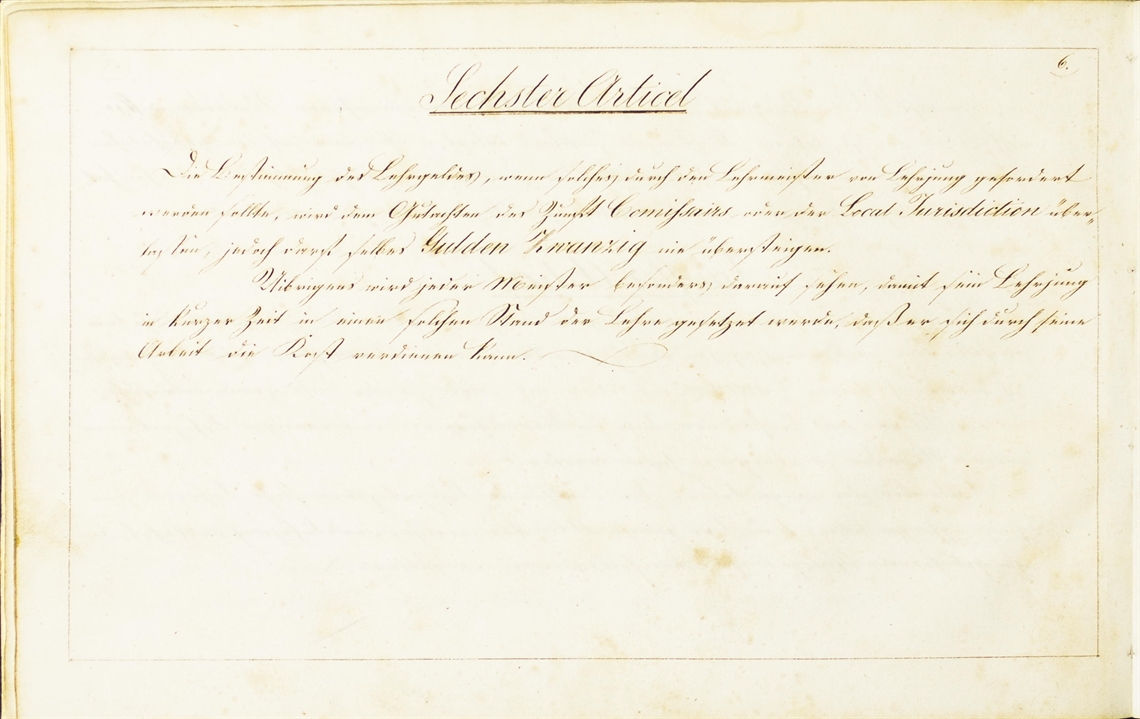 6.
Sechster Articel
Die Bestimmung des Lehrgeldes, wenn solches durch den Lehrmeister von Lehrjung gefordert
werden sollte, wird dem Gutachten des Zunft Comissairs oder der Local Jurisdiction über-
lassen, jedoch darf selbes Gulden Zwanzig nie übersteigen.
Uibrigens wird jeder Meister besonders darauf sehen, damit sein Lehrjung
in kurzer Zeit in einen solchen Stand der Lehre gesetzet werde, daß er sich durch seine
Arbeit die Kost verdienen kann.